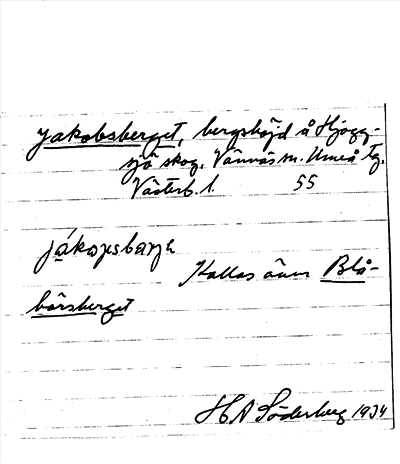 Jakobsberget, bergshöjd å Hjogg-
sjö skog. Vännäs sn. Umeå tg.
Västerb. l. 55
Kallas även Blå-
bärsberget
H A Söderberg 1934